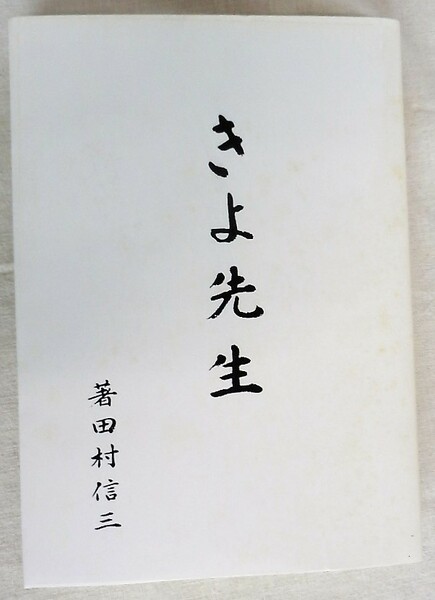 きよ先生
著田村信三